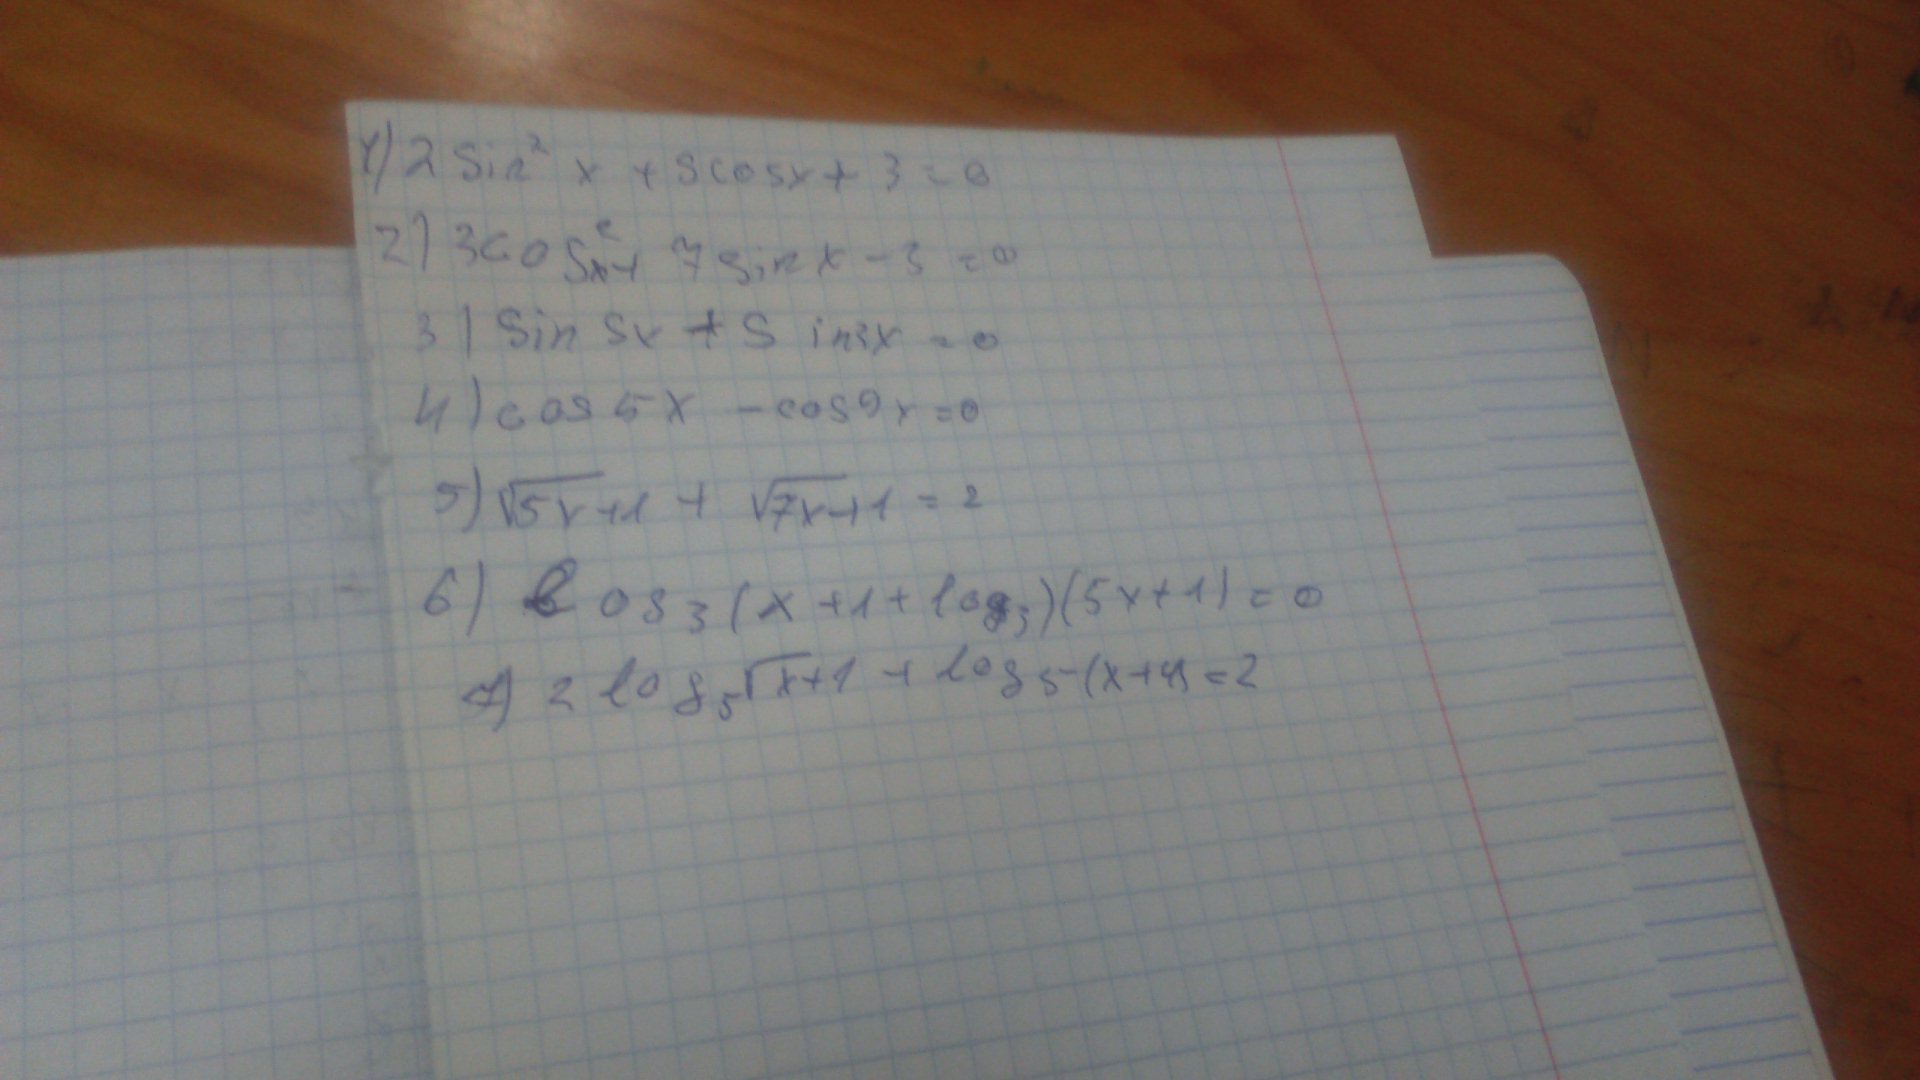 1) 2 sin² x + 5 cos x + 3 = 0
2) 3 cos² x + 7 sin x - 3 = 0
3) sin 5x + sin 3x = 0
4) cos 5x - cos 9x = 0
5) √5x+1 + √7x+1 = 2
6) log₃(x+1+log₃)(5x+1) = 0
7) 2 log₅√x+1 + log₅(x+4) = 2